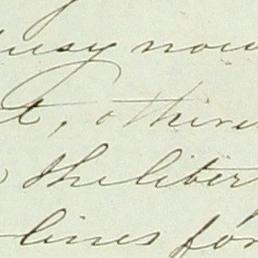 busy now
t, otherw
the liber
lines for